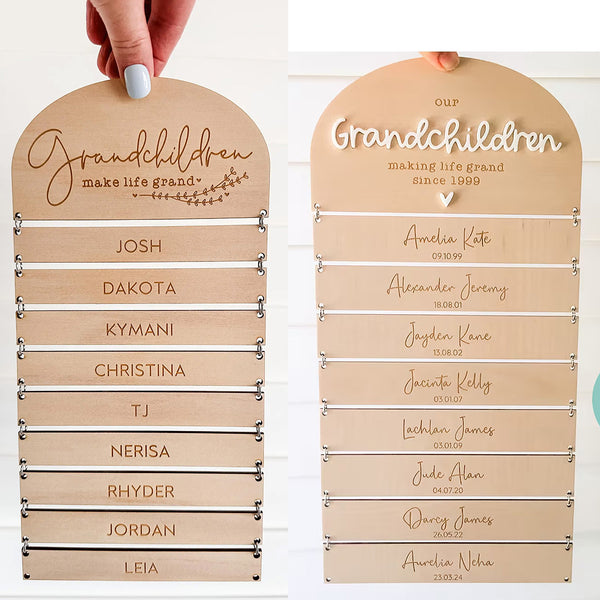 Grandchildren
make life grand
JOSH
DAKOTA
KYMANI
CHRISTINA
TJ
NERISA
RHYDER
JORDAN
LEIA
our
Grandchildren
making life grand
since 1999
Amelia Kate
09.10.99
Alexander Jeremy
18.08.01
Jayden Kane
13.08.02
Jacinta Kelly
03.01.07
Lachlan James
03.01.09
Jude Alan
04.07.20
Darcy James
26.05.22
Aurelia Neha
23.03.24